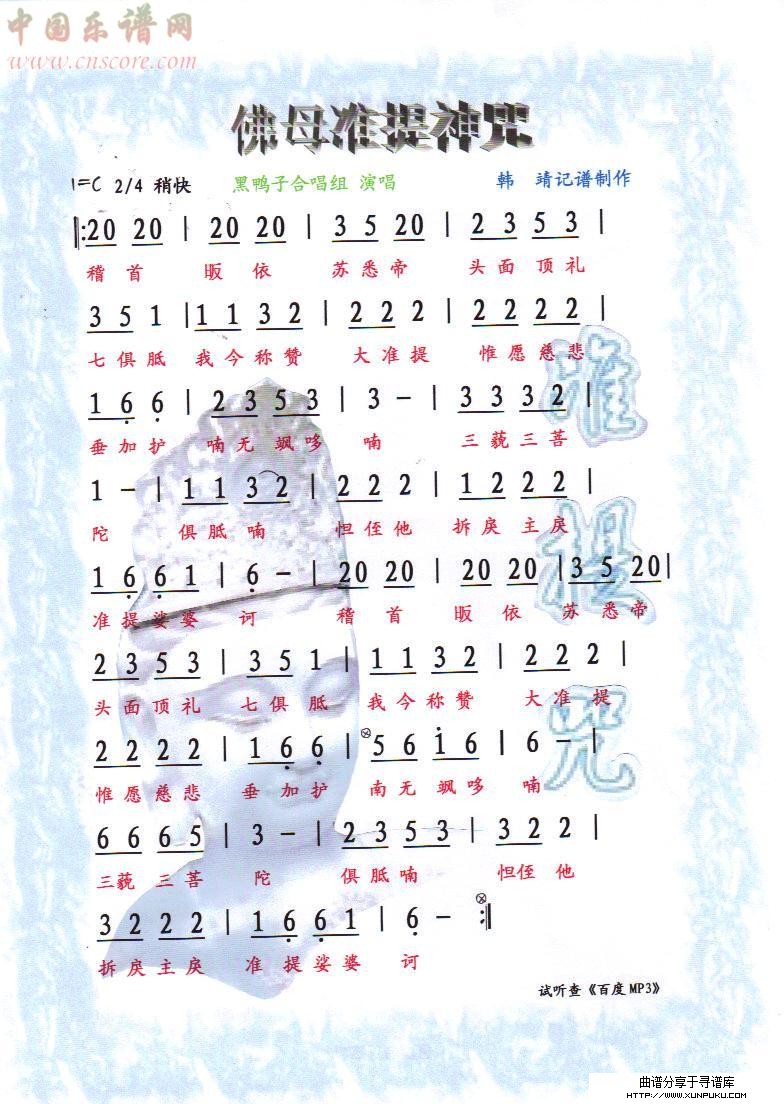 中国乐谱网
www.cnscore.com
佛母准提神咒
1=C 2/4 稍快 黑鸭子合唱组 演唱 韩 靖记谱制作
‖:20 20 | 20 20 | 3 5 20 | 2 3 5 3 |
稽首 皈依 苏悉帝 头面顶礼
3 5 1 | 1 1 3 2 | 2 2 2 | 2 2 2 2 |
七俱胝 我今称赞 大准提 惟愿慈悲
1 6 6 | 2 3 5 3 | 3 – | 3 3 3 2 |
垂加护 喃无飒哆 喃 三藐三菩
1 – | 1 1 3 2 | 2 2 2 | 1 2 2 2 |
陀 俱胝喃 怛侄他 拆戾主戾
1 6 6 1 | 6 – | 20 20 | 20 20 | 3 5 20 |
准提娑婆 诃 稽首 皈依 苏悉帝
2 3 5 3 | 3 5 1 | 1 1 3 2 | 2 2 2 |
头面顶礼 七俱胝 我今称赞 大准提
2 2 2 2 | 1 6 6 | 5 6 1 6 | 6 – |
惟愿慈悲 垂加护 南无飒哆 喃
6 6 6 5 | 3 – | 2 3 5 3 | 3 2 2 |
三藐三菩 陀 俱胝喃 怛侄他
3 2 2 2 | 1 6 6 1 | 6 – :‖
拆戾主戾 准提娑婆 诃
准
提
咒
试听查《百度MP3》
曲谱分享于寻谱库
HTTP://WWW.XUNPUKU.COM